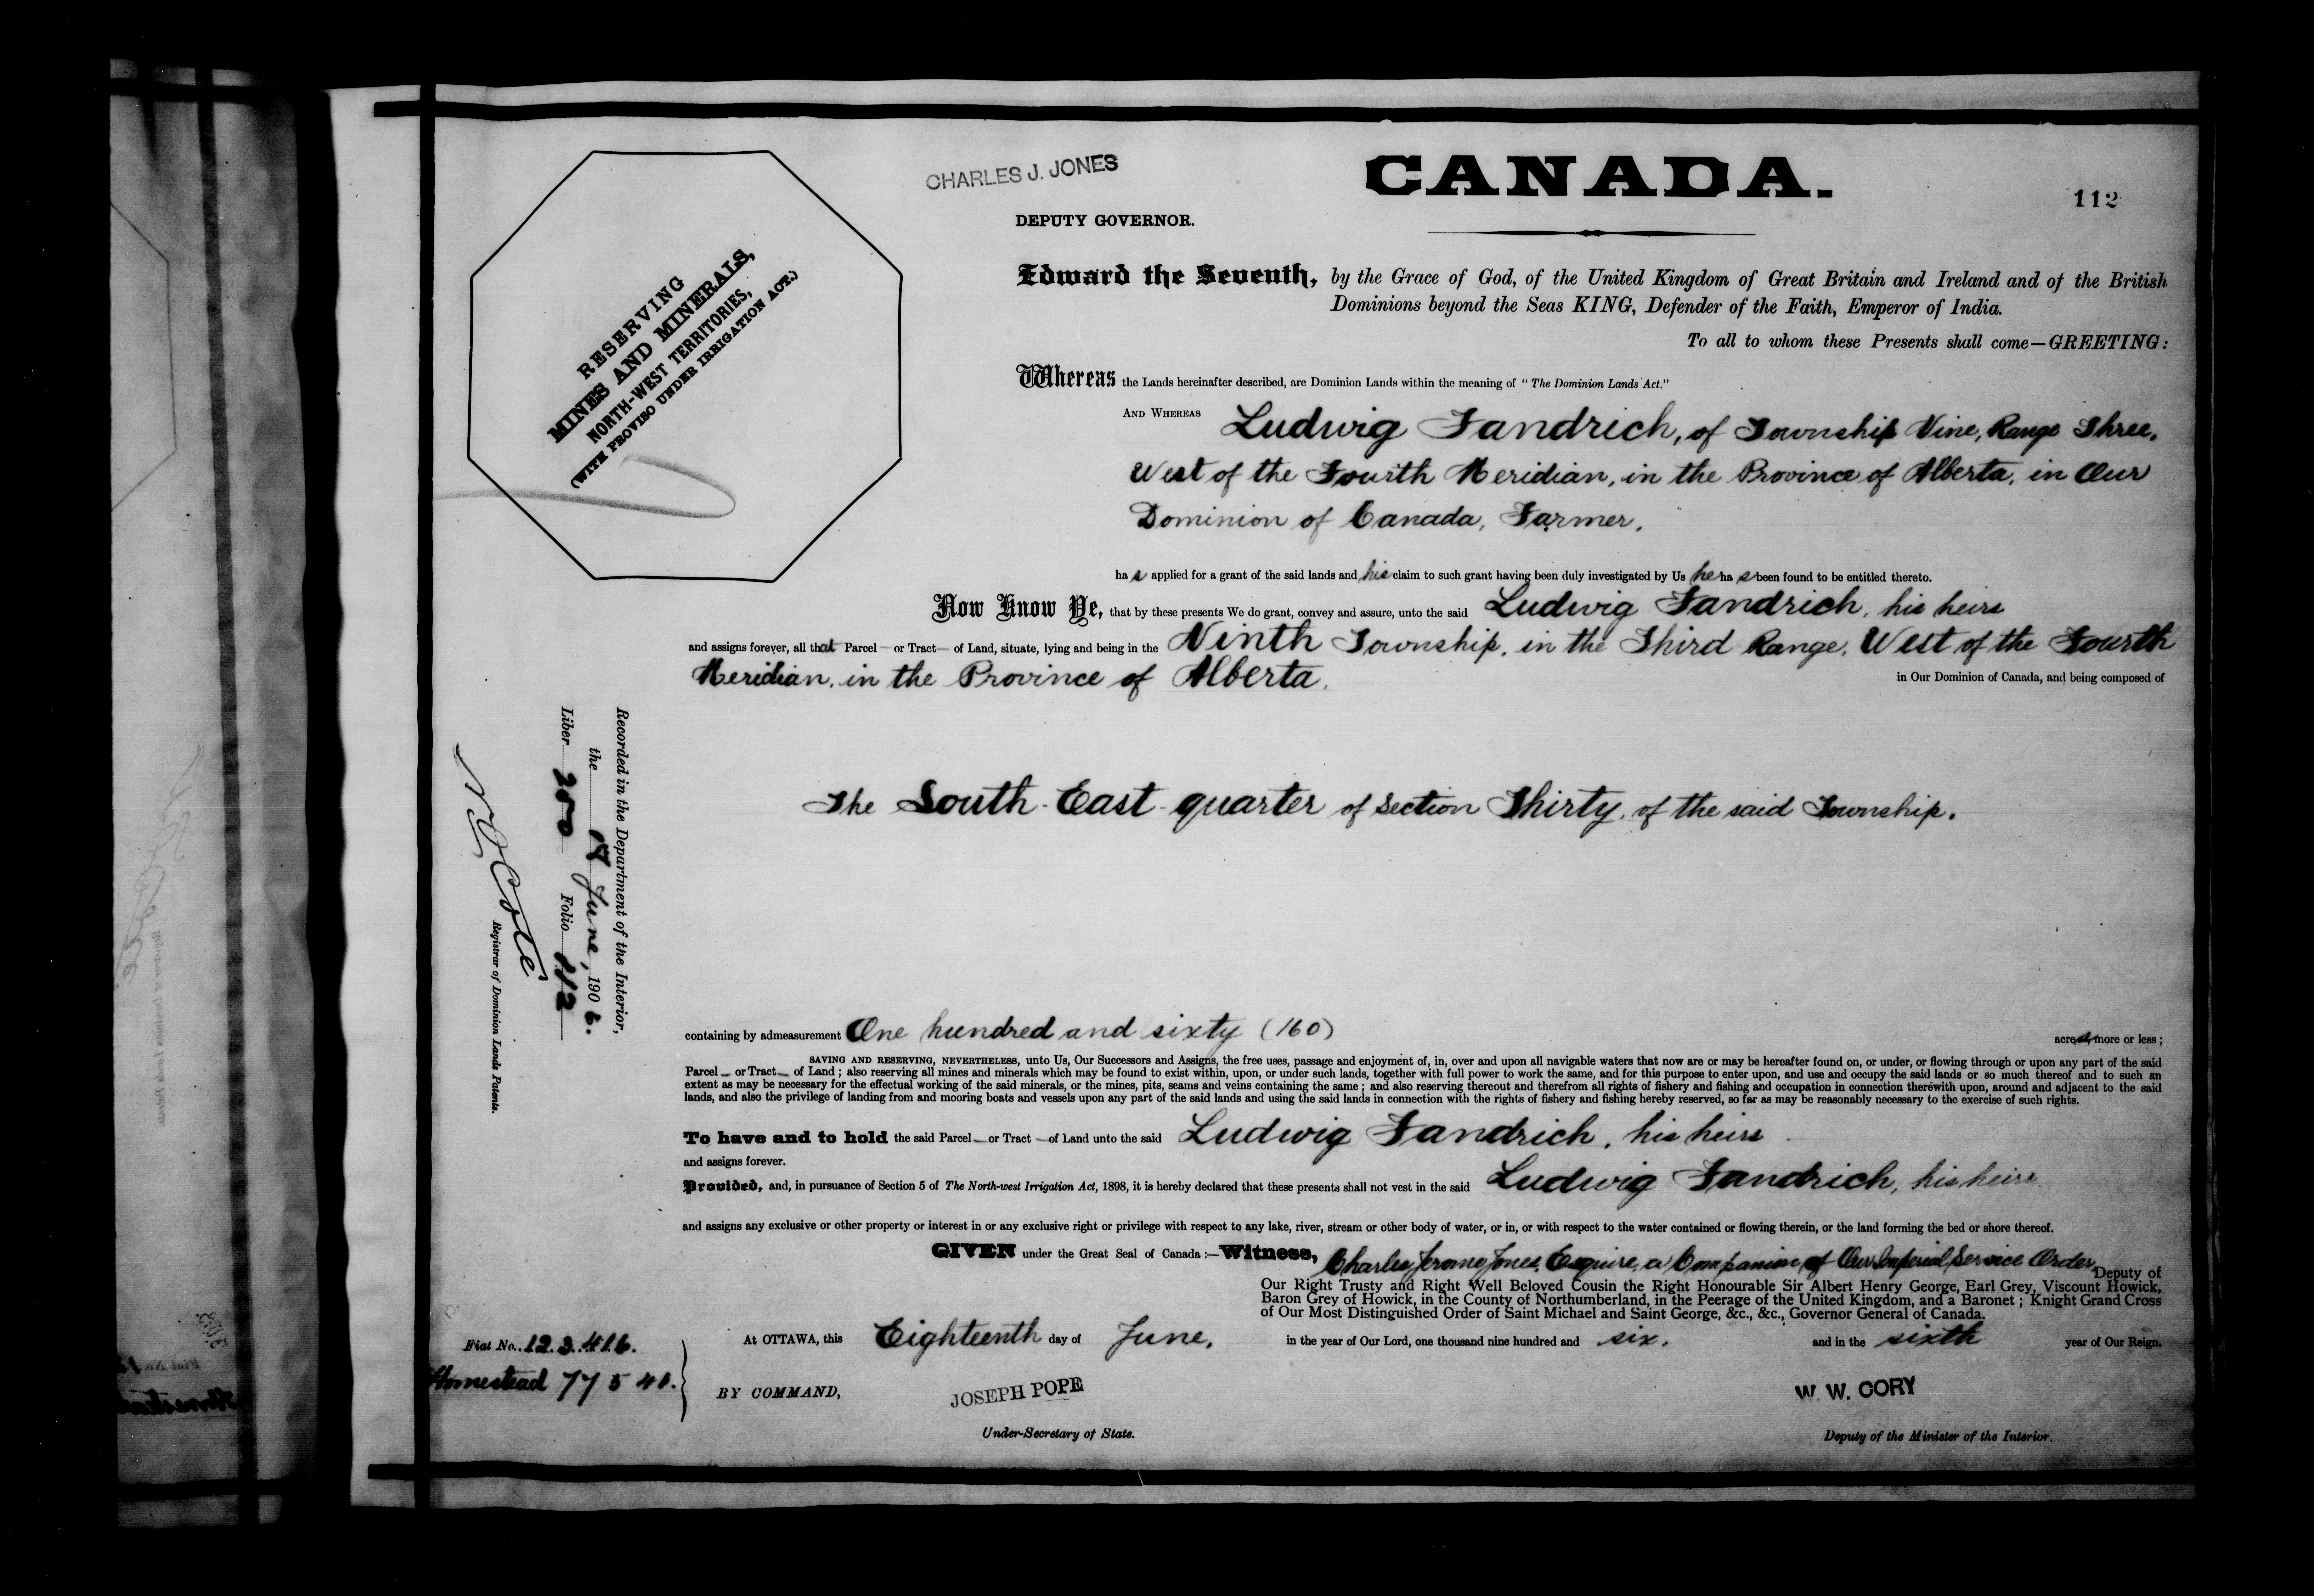 CHARLES J. JONES
CANADA.
112
DEPUTY GOVERNOR.
RESERVING
MINES AND MINERALS,
NORTH-WEST TERRITORIES,
(WITH PROVISO UNDER IRRIGATION ACT.)
Edward the Seventh, by the Grace of God, of the United Kingdom of Great Britain and Ireland and of the British
Dominions beyond the Seas KING, Defender of the Faith, Emperor of India.
To all to whom these Presents shall come—GREETING:
Whereas the Lands hereinafter described, are Dominion Lands within the meaning of "The Dominion Lands Act."
AND WHEREAS Ludwig Fandrich, of Township Nine, Range Three,
West of the Fourth Meridian, in the Province of Alberta, in Our
Dominion of Canada, Farmer,
has applied for a grant of the said lands and his claim to such grant having been duly investigated by Us he has been found to be entitled thereto.
Now Know Ye, that by these presents We do grant, convey and assure, unto the said Ludwig Fandrich, his heirs
and assigns forever, all that Parcel — or Tract — of Land, situate, lying and being in the Ninth Township, in the Third Range, West of the Fourth
Meridian, in the Province of Alberta, in Our Dominion of Canada, and being composed of
The South-East quarter of Section Thirty, of the said Township.
Recorded in the Department of the Interior,
the June, 1906.
Liber 200 Folio 112
N O Coté
Registrar of Dominion Lands Patents.
containing by admeasurement One hundred and sixty (160) acres, more or less;
SAVING AND RESERVING, NEVERTHELESS, unto Us, Our Successors and Assigns, the free uses, passage and enjoyment of, in, over and upon all navigable waters that now are or may be hereafter found on, or under, or flowing through or upon any part of the said
Parcel — or Tract — of Land; also reserving all mines and minerals which may be found to exist within, upon, or under such lands, together with full power to work the same, and for this purpose to enter upon, and use and occupy the said lands or so much thereof and to such an
extent as may be necessary for the effectual working of the said minerals, or the mines, pits, seams and veins containing the same; and also reserving thereout and therefrom all rights of fishery and fishing and occupation in connection therewith upon, around and adjacent to the said
lands, and also the privilege of landing from and mooring boats and vessels upon any part of the said lands and using the said lands in connection with the rights of fishery and fishing hereby reserved, so far as may be reasonably necessary to the exercise of such rights.
To have and to hold the said Parcel — or Tract — of Land unto the said Ludwig Fandrich, his heirs
and assigns forever.
Provided, and, in pursuance of Section 5 of The North-west Irrigation Act, 1898, it is hereby declared that these presents shall not vest in the said Ludwig Fandrich, his heirs
and assigns any exclusive or other property or interest in or any exclusive right or privilege with respect to any lake, river, stream or other body of water, or in, or with respect to the water contained or flowing therein, or the land forming the bed or shore thereof.
GIVEN under the Great Seal of Canada:—Witness, Charles Jerome Jones, Esquire, a Companion of Our Imperial Service Order, Deputy of
Our Right Trusty and Right Well Beloved Cousin the Right Honourable Sir Albert Henry George, Earl Grey, Viscount Howick,
Baron Grey of Howick, in the County of Northumberland, in the Peerage of the United Kingdom, and a Baronet; Knight Grand Cross
of Our Most Distinguished Order of Saint Michael and Saint George, &c., &c., Governor General of Canada.
At OTTAWA, this Eighteenth day of June, in the year of Our Lord, one thousand nine hundred and six. and in the sixth year of Our Reign.
Fiat No. 123416.
Homestead 77540.
BY COMMAND,
JOSEPH POPE
Under-Secretary of State.
W. W. CORY
Deputy of the Minister of the Interior.